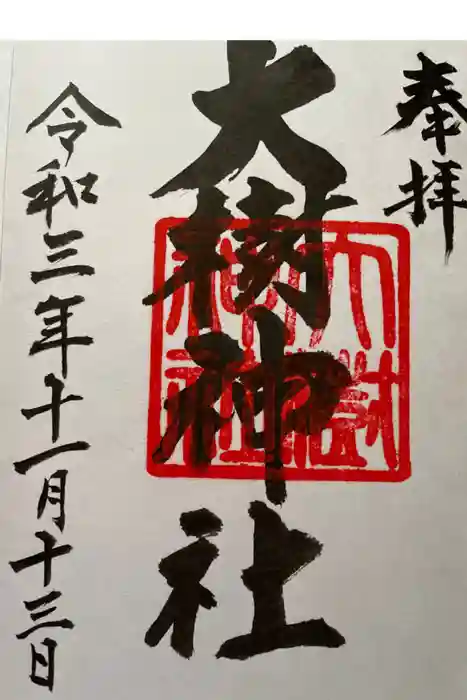 奉拝
大樹神社
大樹神社
令和三年十一月十三日